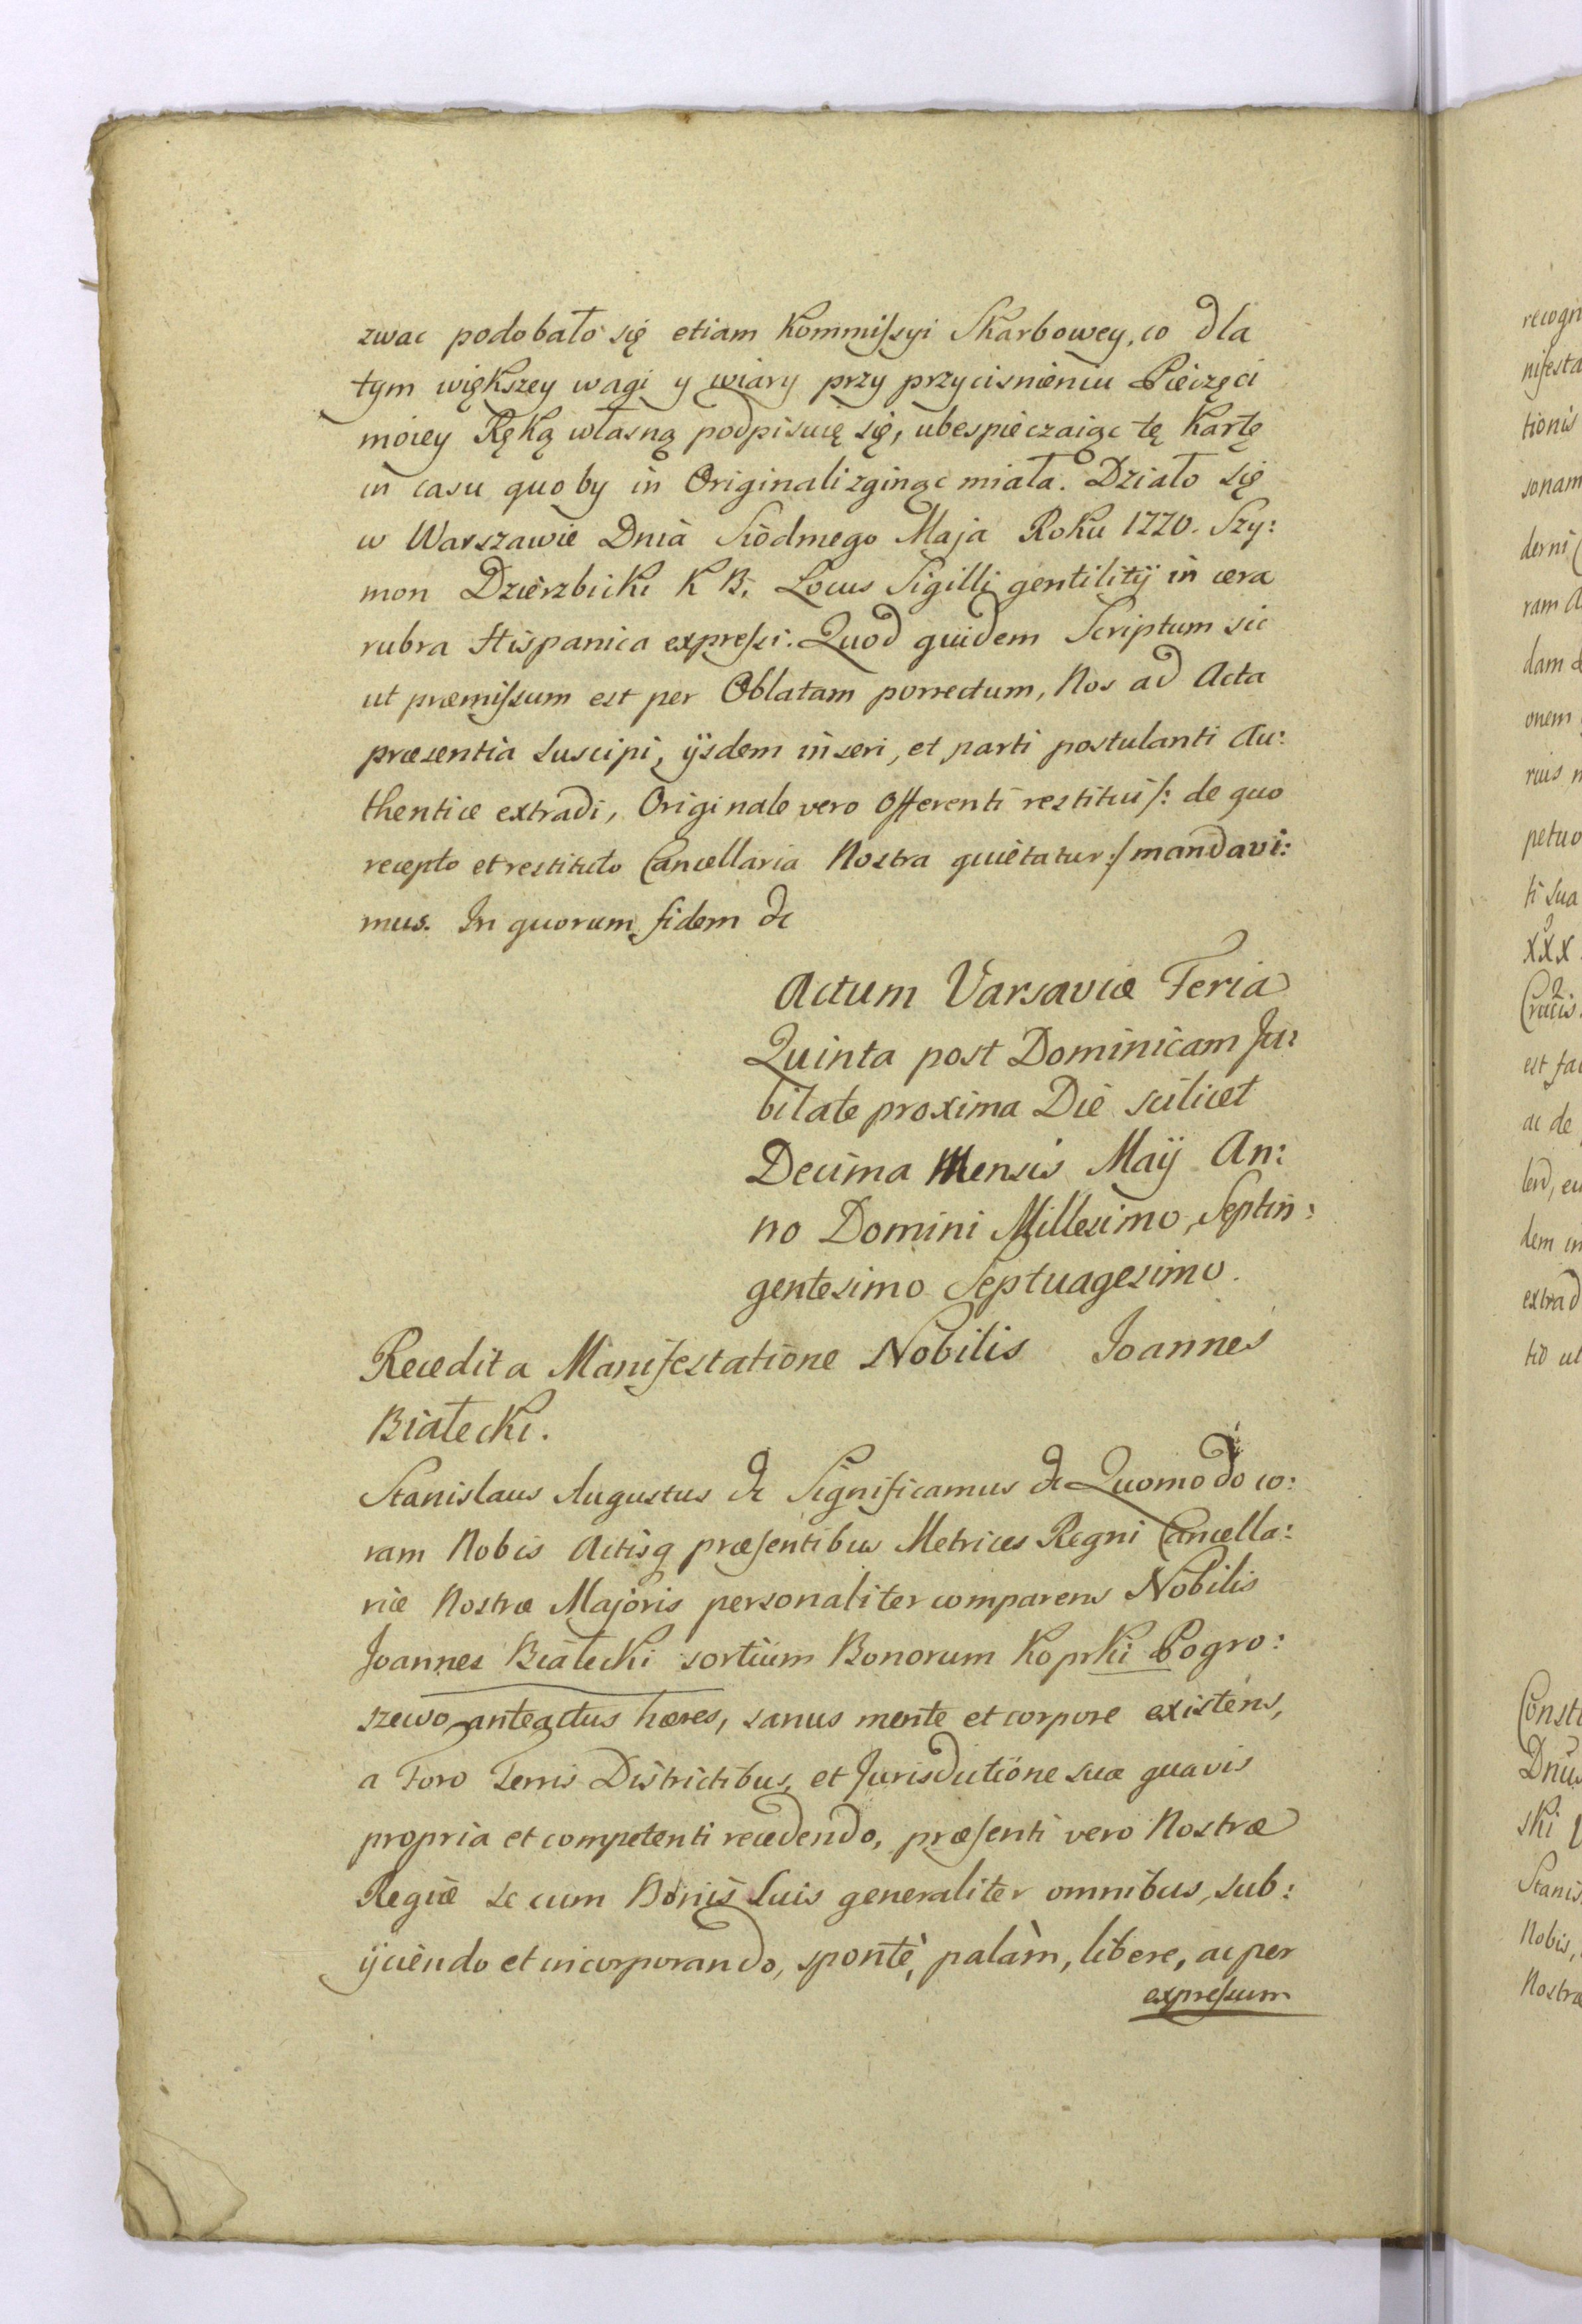 zwac podobało się etiam Kommissyi Skarbowey, co dla
tym większey wagi y wiary przy przycisnieniu Pieczęci
moiey Ręką własną podpisuię się, ubespieczaiąc tę Kartę
in casu quo by in Originali zginąc miała. Działo się
w Warszawie Dnia Siódmego Maja Roku 1770. Szy:
mon Dzierzbicki K B. Locus Sigilli gentilitij in cera
rubra Hispanica expressi. Quod quidem Scriptum sic
ut præmissum est per Oblatam porrectum, Nos ad Acta
præsentia suscipi, ijsdem inseri, et parti postulanti Au:
thentice extradi, Originale vero Offerenti restitui /: de quo
recepto et restituto Cancellaria Nostra quietatur :/ mandavi:
mus. In quorum fidem &c
Actum Varsaviæ Feria
Quinta post Dominicam Ju:
bilate proxima Die scilicet
Decima Mensis Maij An:
no Domini Millesimo, Septin:
gentesimo Septuagesimo.
Recedit a Manifestatione Nobilis Joannes
Białecki.
Stanislaus Augustus &c Significamus &c Quomodo co:
ram Nobis Actisq præsentibus Metrices Regni Cancella:
riæ Nostræ Majoris personaliter comparens Nobilis
Joannes Białecki sortium Bonorum Koprki Pogro:
szewo anteactus hæres, sanus mente et corpore existens,
a Foro Terris Districtibus, et Jurisdictione sua quavis
propria et competenti recedendo, præsenti vero Nostræ
Regiæ se cum Bonis Suis generaliter omnibus, sub:
ijciendo et incorporando, spontè, palàm, libere, ac per
expressum
recogn
nifesta
tionis
sonam
derni
ram A
dam
onem
petuo
ti sua
XXX
Crucis
est fa
ac de
dem in
extrad
Const
Dnus
ski
Stanis
Nobis,
Nostræ